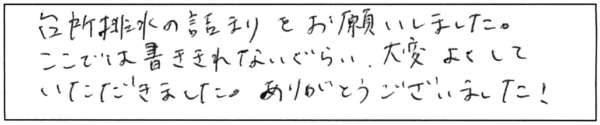 台所排水の詰まりをお願いしました。
ここでは書ききれないぐらい、大変よくして
いただきました。ありがとうございました！